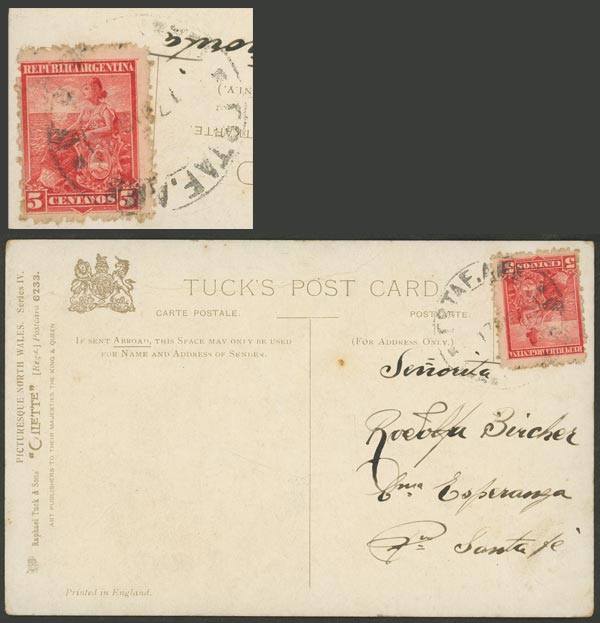 REPUBLICA ARGENTINA
5 CENTAVOS 5
TUCK'S POST CARD
CARTE POSTALE.
POSTKARTE.
IF SENT ABROAD, THIS SPACE MAY ONLY BE USED
FOR NAME AND ADDRESS OF SENDER.
(FOR ADDRESS ONLY.)
Señorita
Bircher
Esperanza
Santa fé
REPUBLICA ARGENTINA
5 CENTAVOS 5
PICTURESQUE NORTH WALES. Series IV.
"OILETTE" [Regd.] Postcard 6233.
Raphael Tuck & Sons'
ART PUBLISHERS TO THEIR MAJESTIES THE KING & QUEEN
Printed in England.